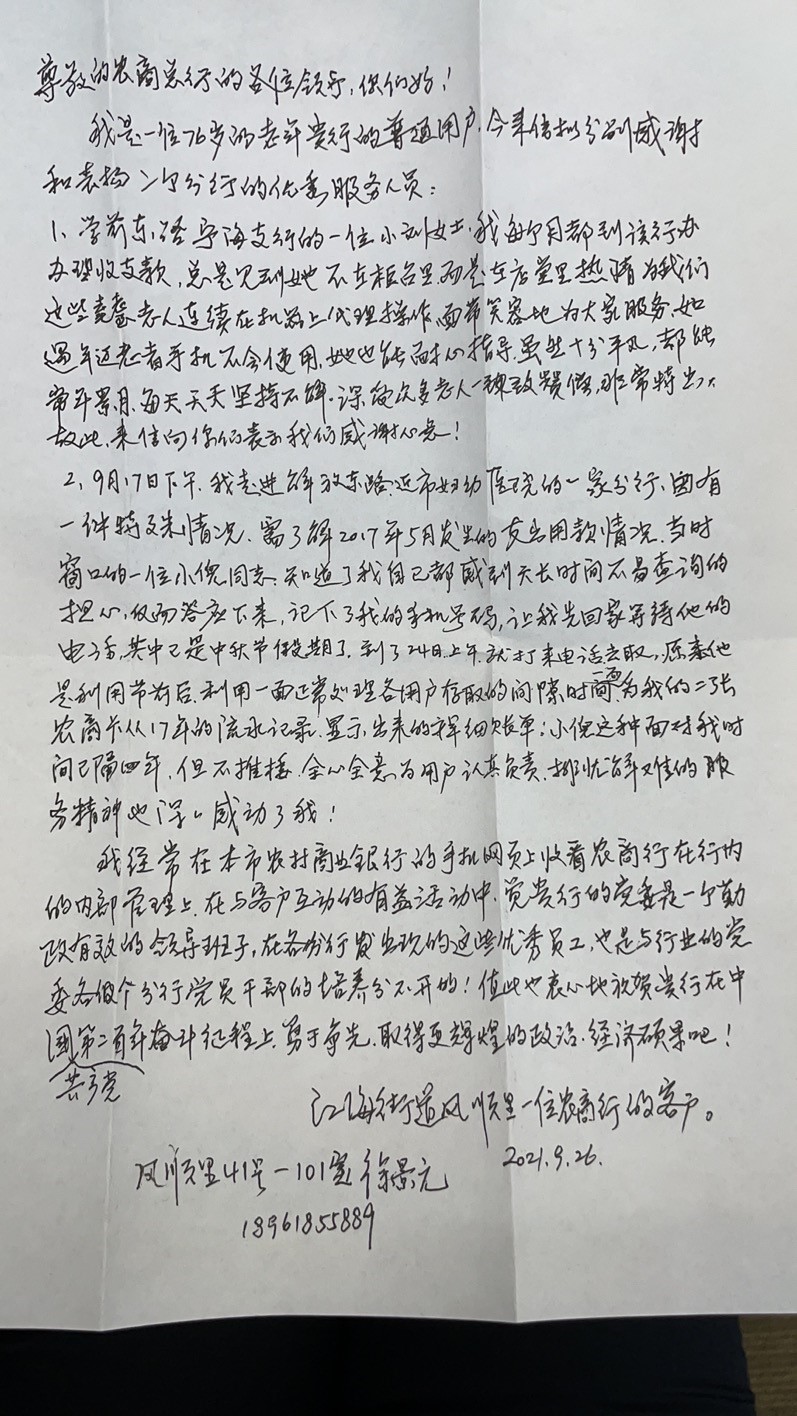 尊敬的农商总行的各位领导，你们好！
我是一位76岁的老年贵行的普通用户，今来信拟分别感谢
和表扬二个分行的优秀服务人员：
1、学前东路宁海支行的一位小刘女士，我每个月都到该行办
办理收支款，总是见到她不在柜台里而是在店堂里热情为我们
这些耄耋老人连续在机器上代理操作，面带笑容地为大家服务，如
遇年迈患者手机不会使用，她也能耐心指导，虽然十分平凡，却能
常年累月，每天天天坚持不懈。深使众多老人一种敬赞偿，非常特出，
故此，来信向你们表示我们感谢心意！
2、9月17日下午，我走进解放东路近市妇幼医院的一家分行，因有
一件特殊情况，需了解2017年5月发生的支出用款情况，当时
窗口的一位小倪同志，知道了我自己都感到天长时间不易查询的
担心，反而答应下来，记下了我的手机号码，让我先回家等待他的
电话，其中已是中秋节假期了，到了24日上午，就打来电话去取，原来他
是利用节前后，利用一面正常处理各用户存取的间隙时间，一面为我的二张
农商卡从17年的流水记录，显示出来的详细账单；小倪这种面对我时
间已隔四年，但不推接，全心全意为用户认真负责，排忧解难的服
务精神也深深感动了我！
我经常在本市农村商业银行的手机网页上收看农商行在行内
的内部管理上，在与客户互动的有益活动中，觉贵行的党委是一个勤
政有效的领导班子，在各分行发出现的这些优秀员工，也是与行业的党
委各级个分行党员干部的培养分不开的！值此也衷心地祝贺贵行在中
国第二百年奋斗征程上，勇于争先，取得更辉煌的政治、经济硕果吧！
共产党
江海街道风顺里一位农商行的客户。
2021.9.26.
风顺里41号-101室 徐景元
18961855884